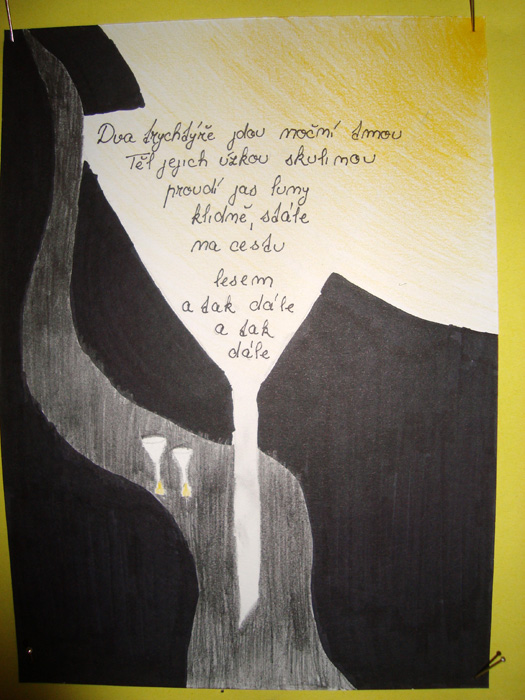 Dva trychtýře jdou noční tmou
Těl jejich úzkou skulinou
proudí jas luny
klidně, stále
na cestu
lesem
a tak dále
a tak
dále